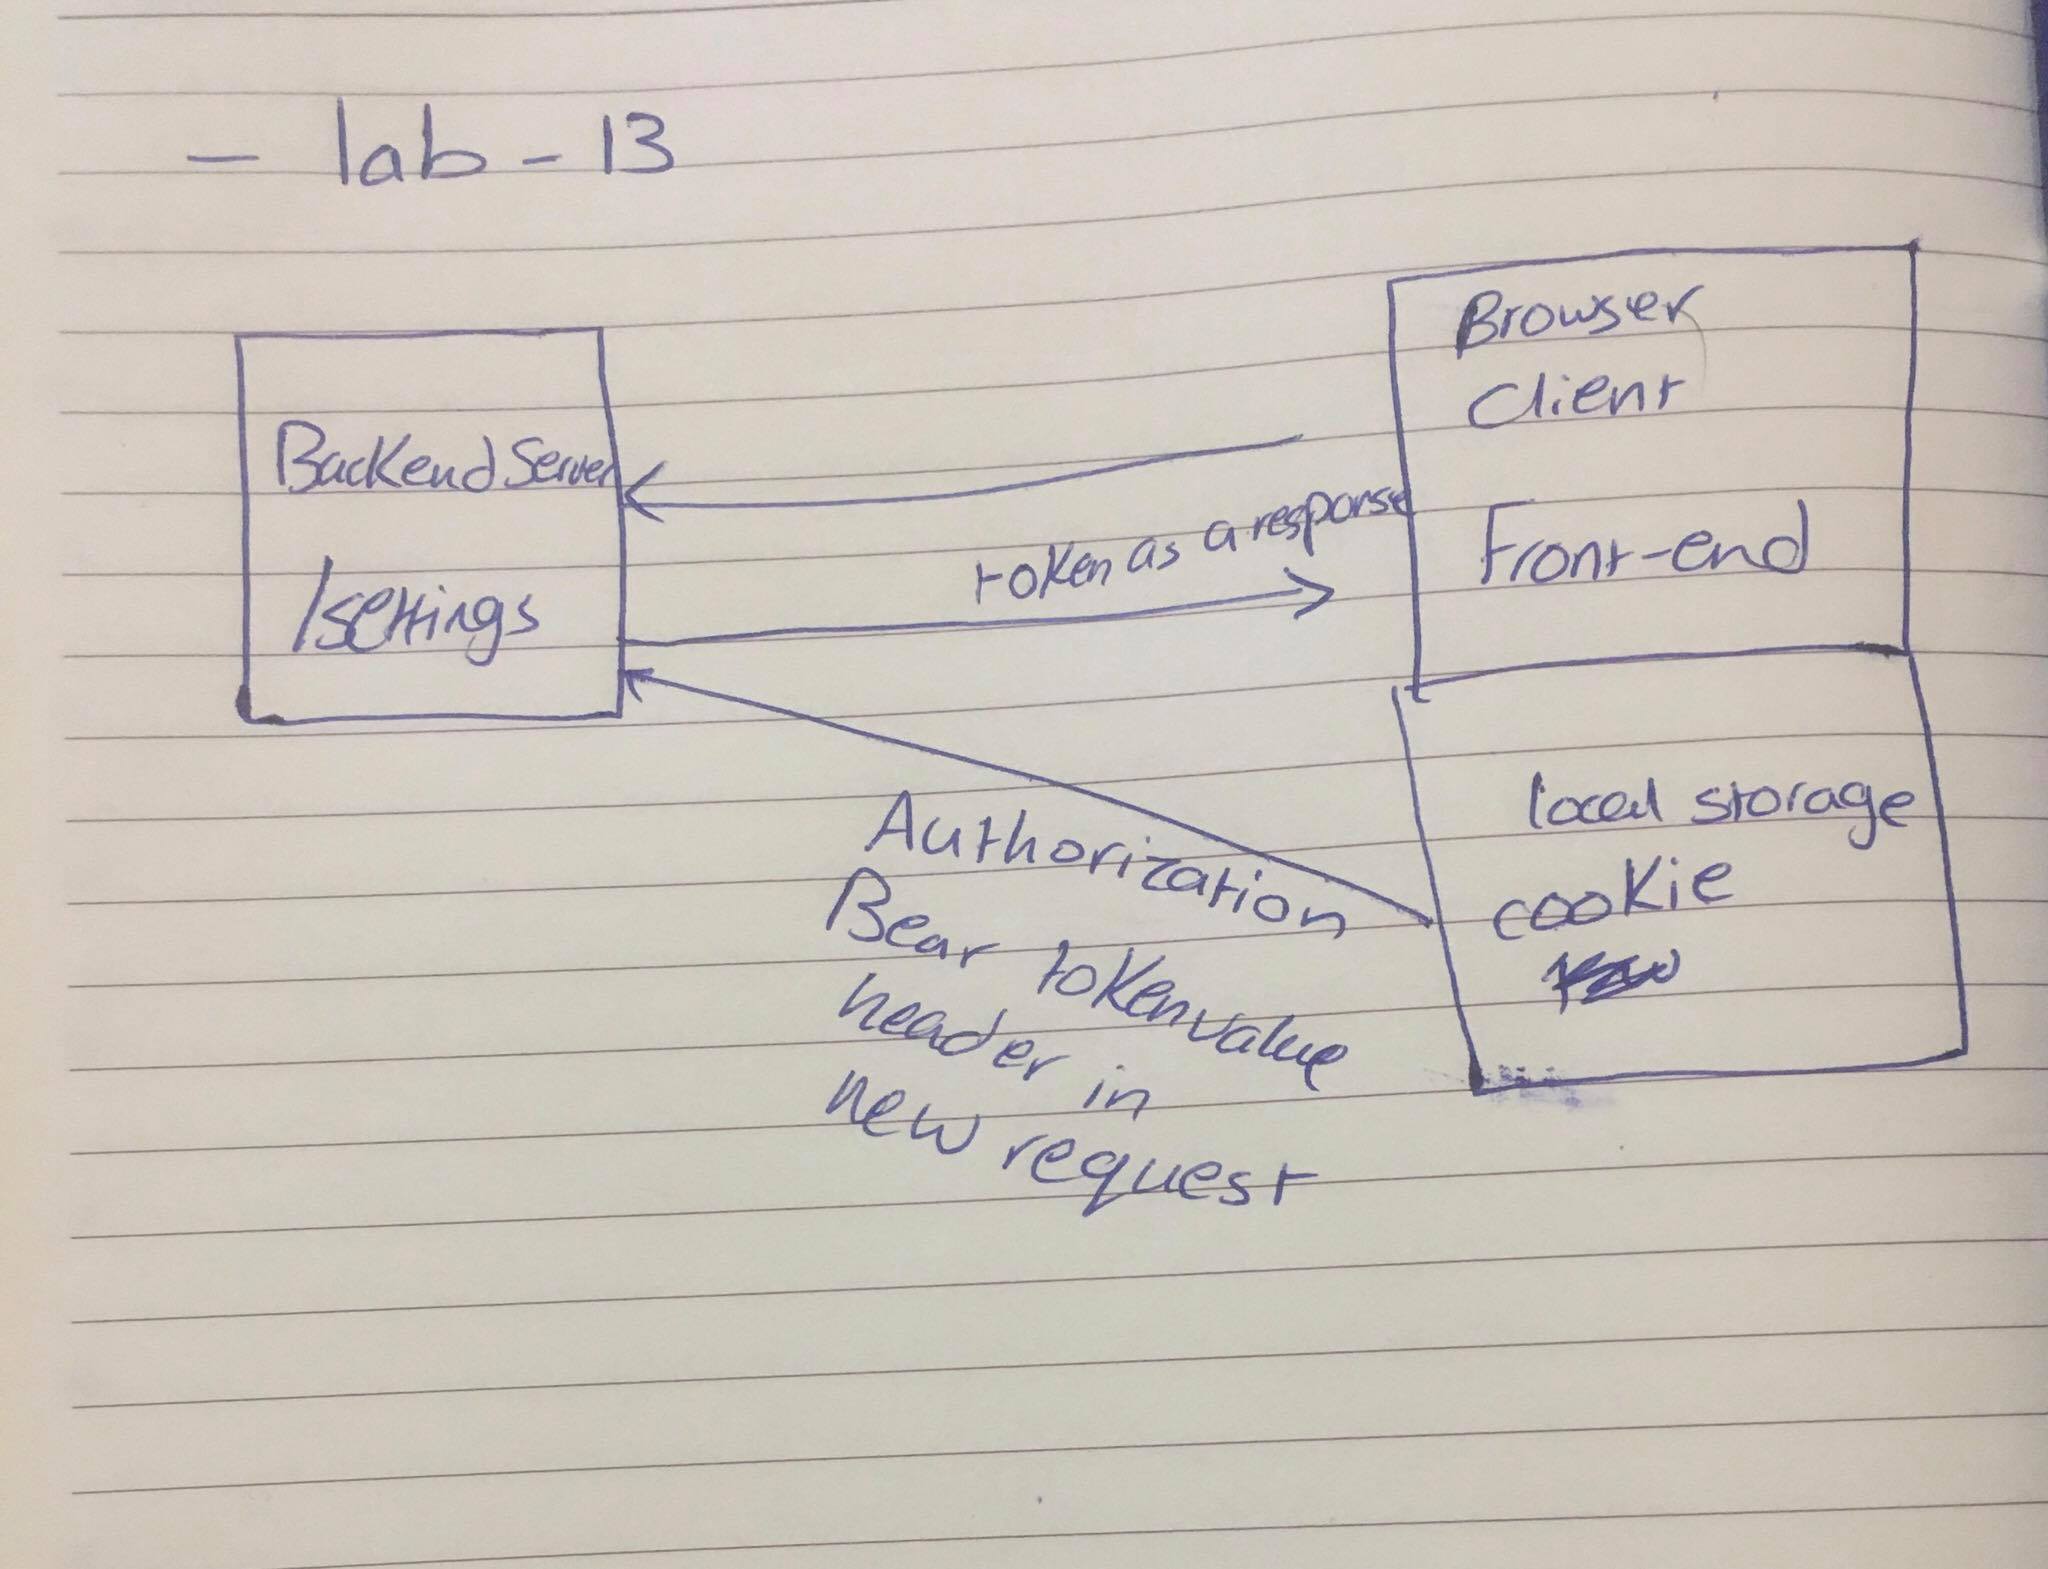 - lab - 13
Backend Server
/settings
token as a response
Browser
client
Front-end
local storage
cookie
Authorization
Bear tokenvalue
header in
new request